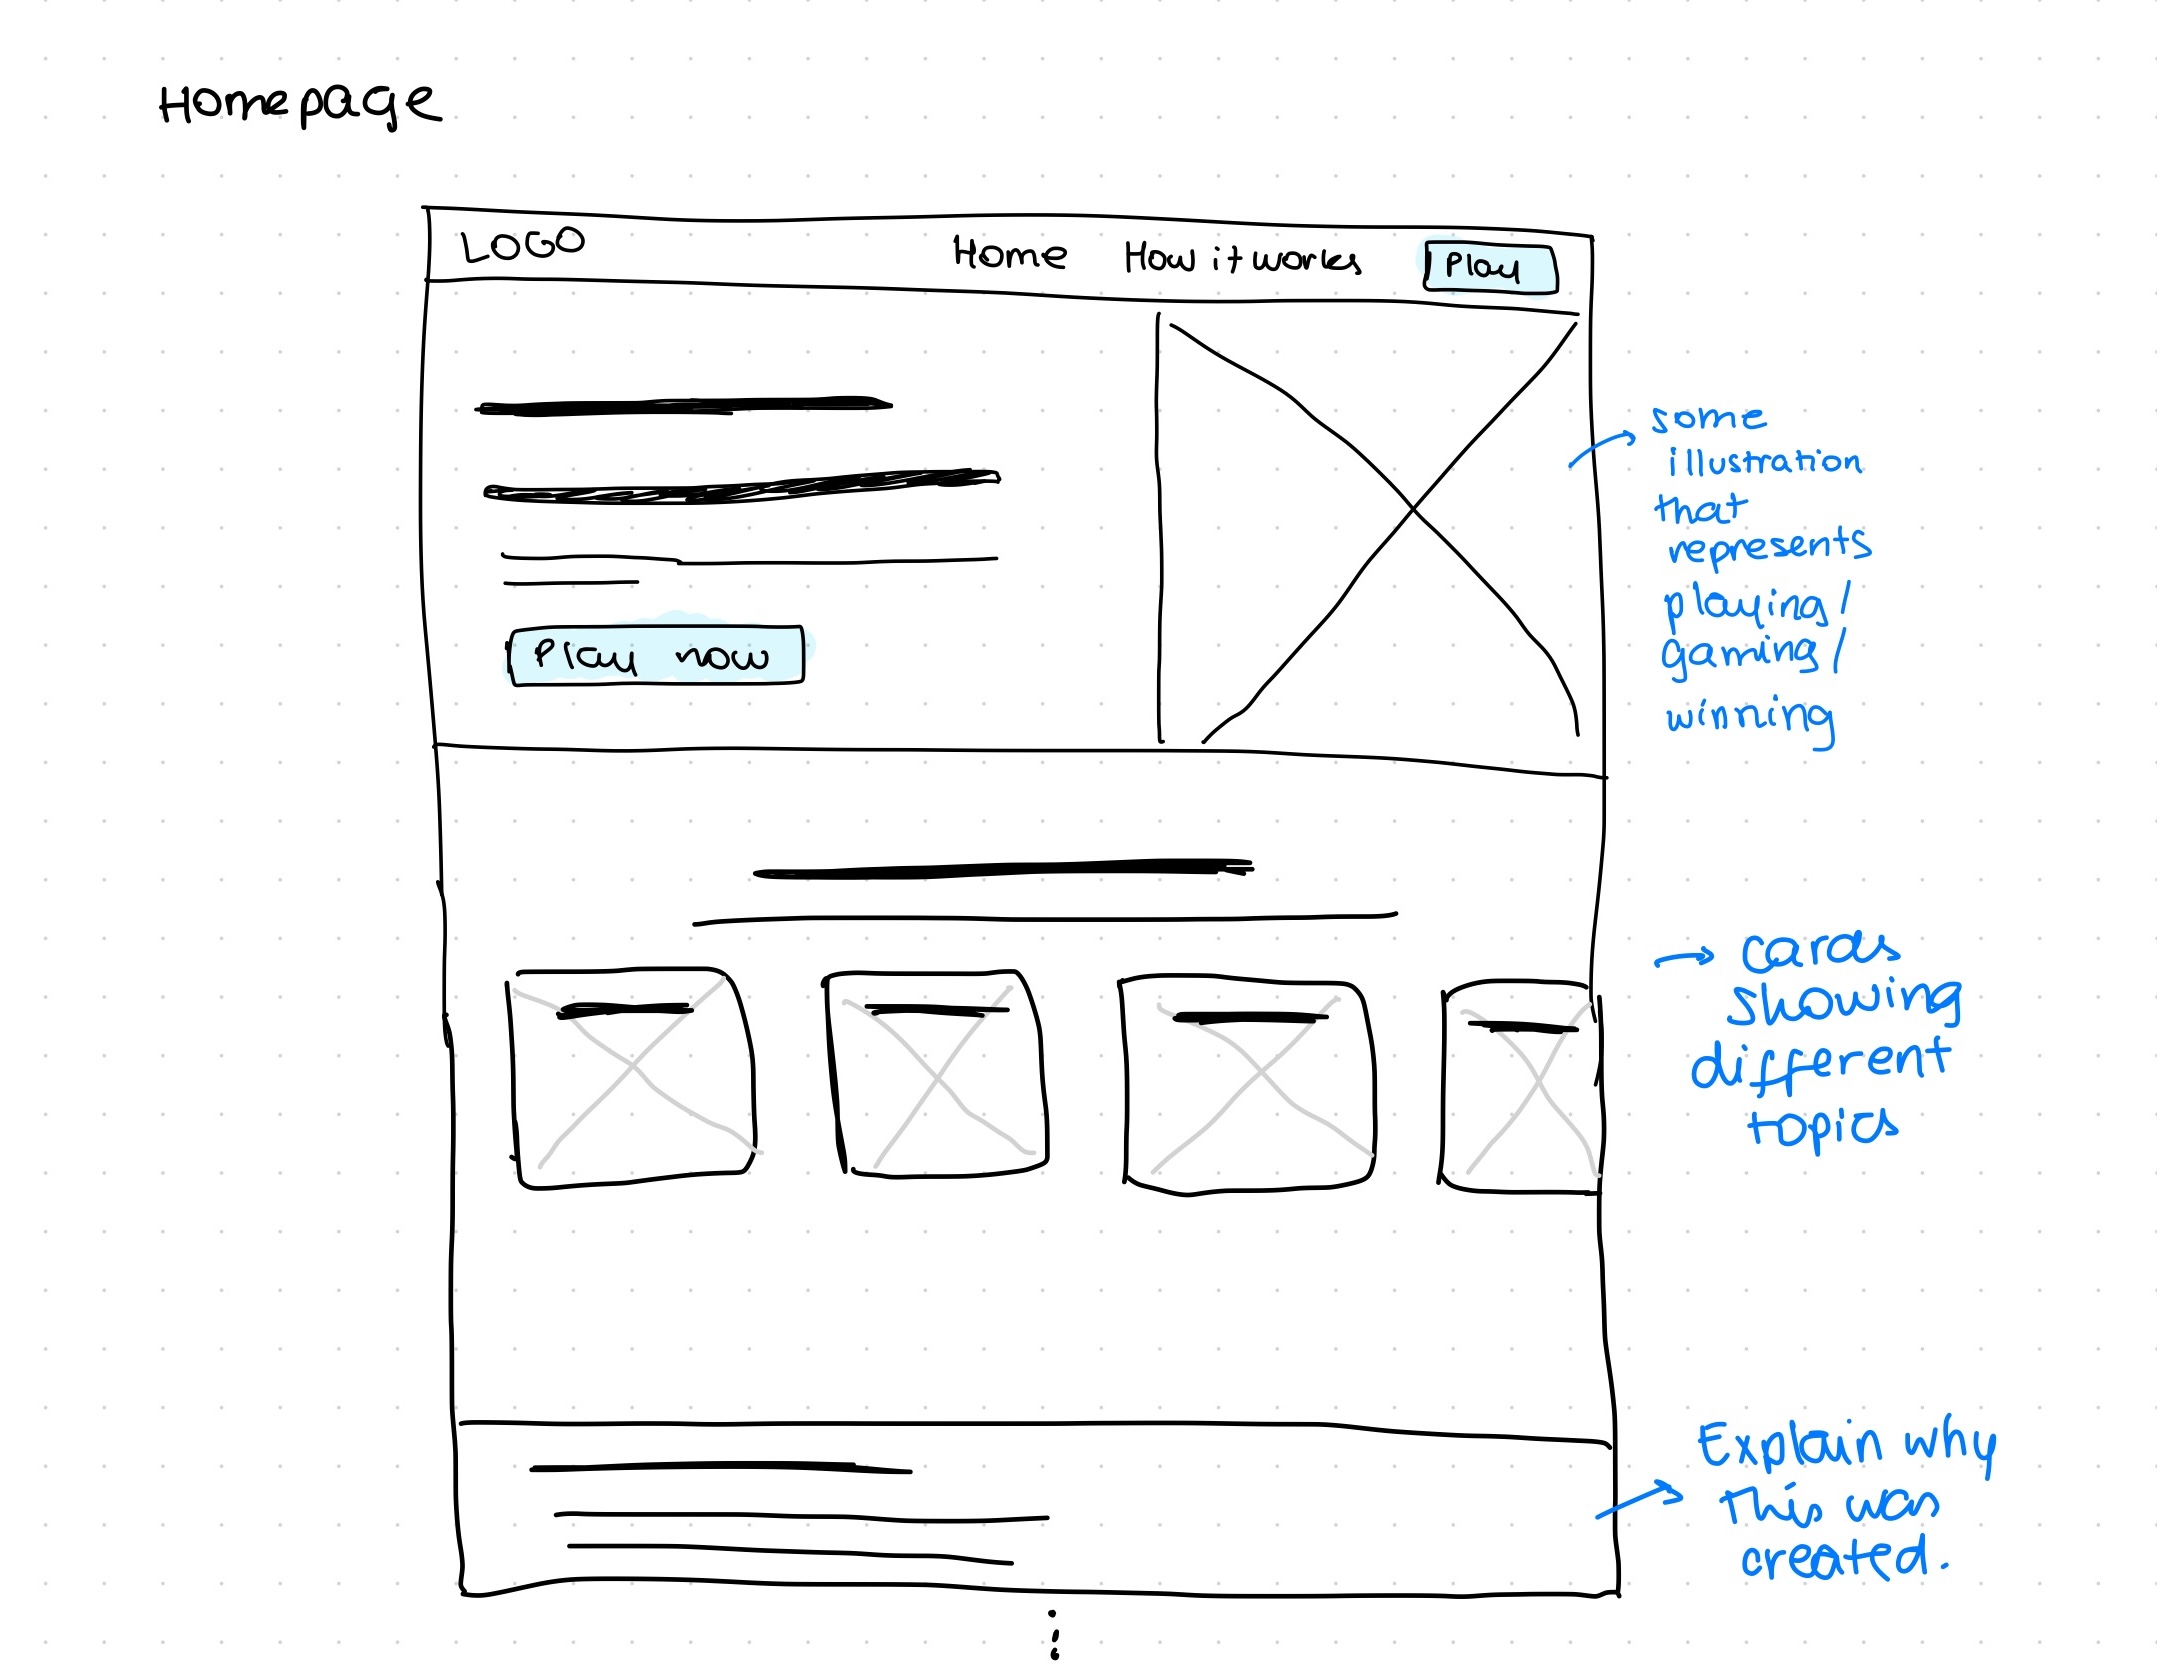 Homepage
LOGO
Home
How it works
Play
some
illustration
that
represents
playing/
gaming/
winning
Play now
cards
showing
different
topics
Explain why
this was
created.